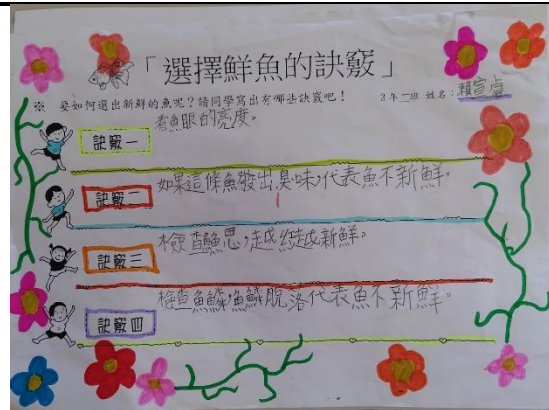 「選擇鮮魚的訣竅」
※ 要如何選出新鮮的魚呢？請同學寫出有哪些訣竅吧！ 3年二班 姓名：賴宣
看魚眼的亮度。
訣竅一
如果這條魚發出臭味，代表魚不新鮮。
訣竅二
檢查鰓，越紅越新鮮。
訣竅三
檢查魚鱗，魚鱗脫落代表魚不新鮮。
訣竅四